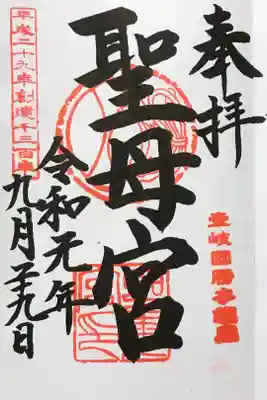 奉拝
壹岐国勝本鎮座
聖母宮
令和元年
九月二十九日
平成二十九年創建千三百年